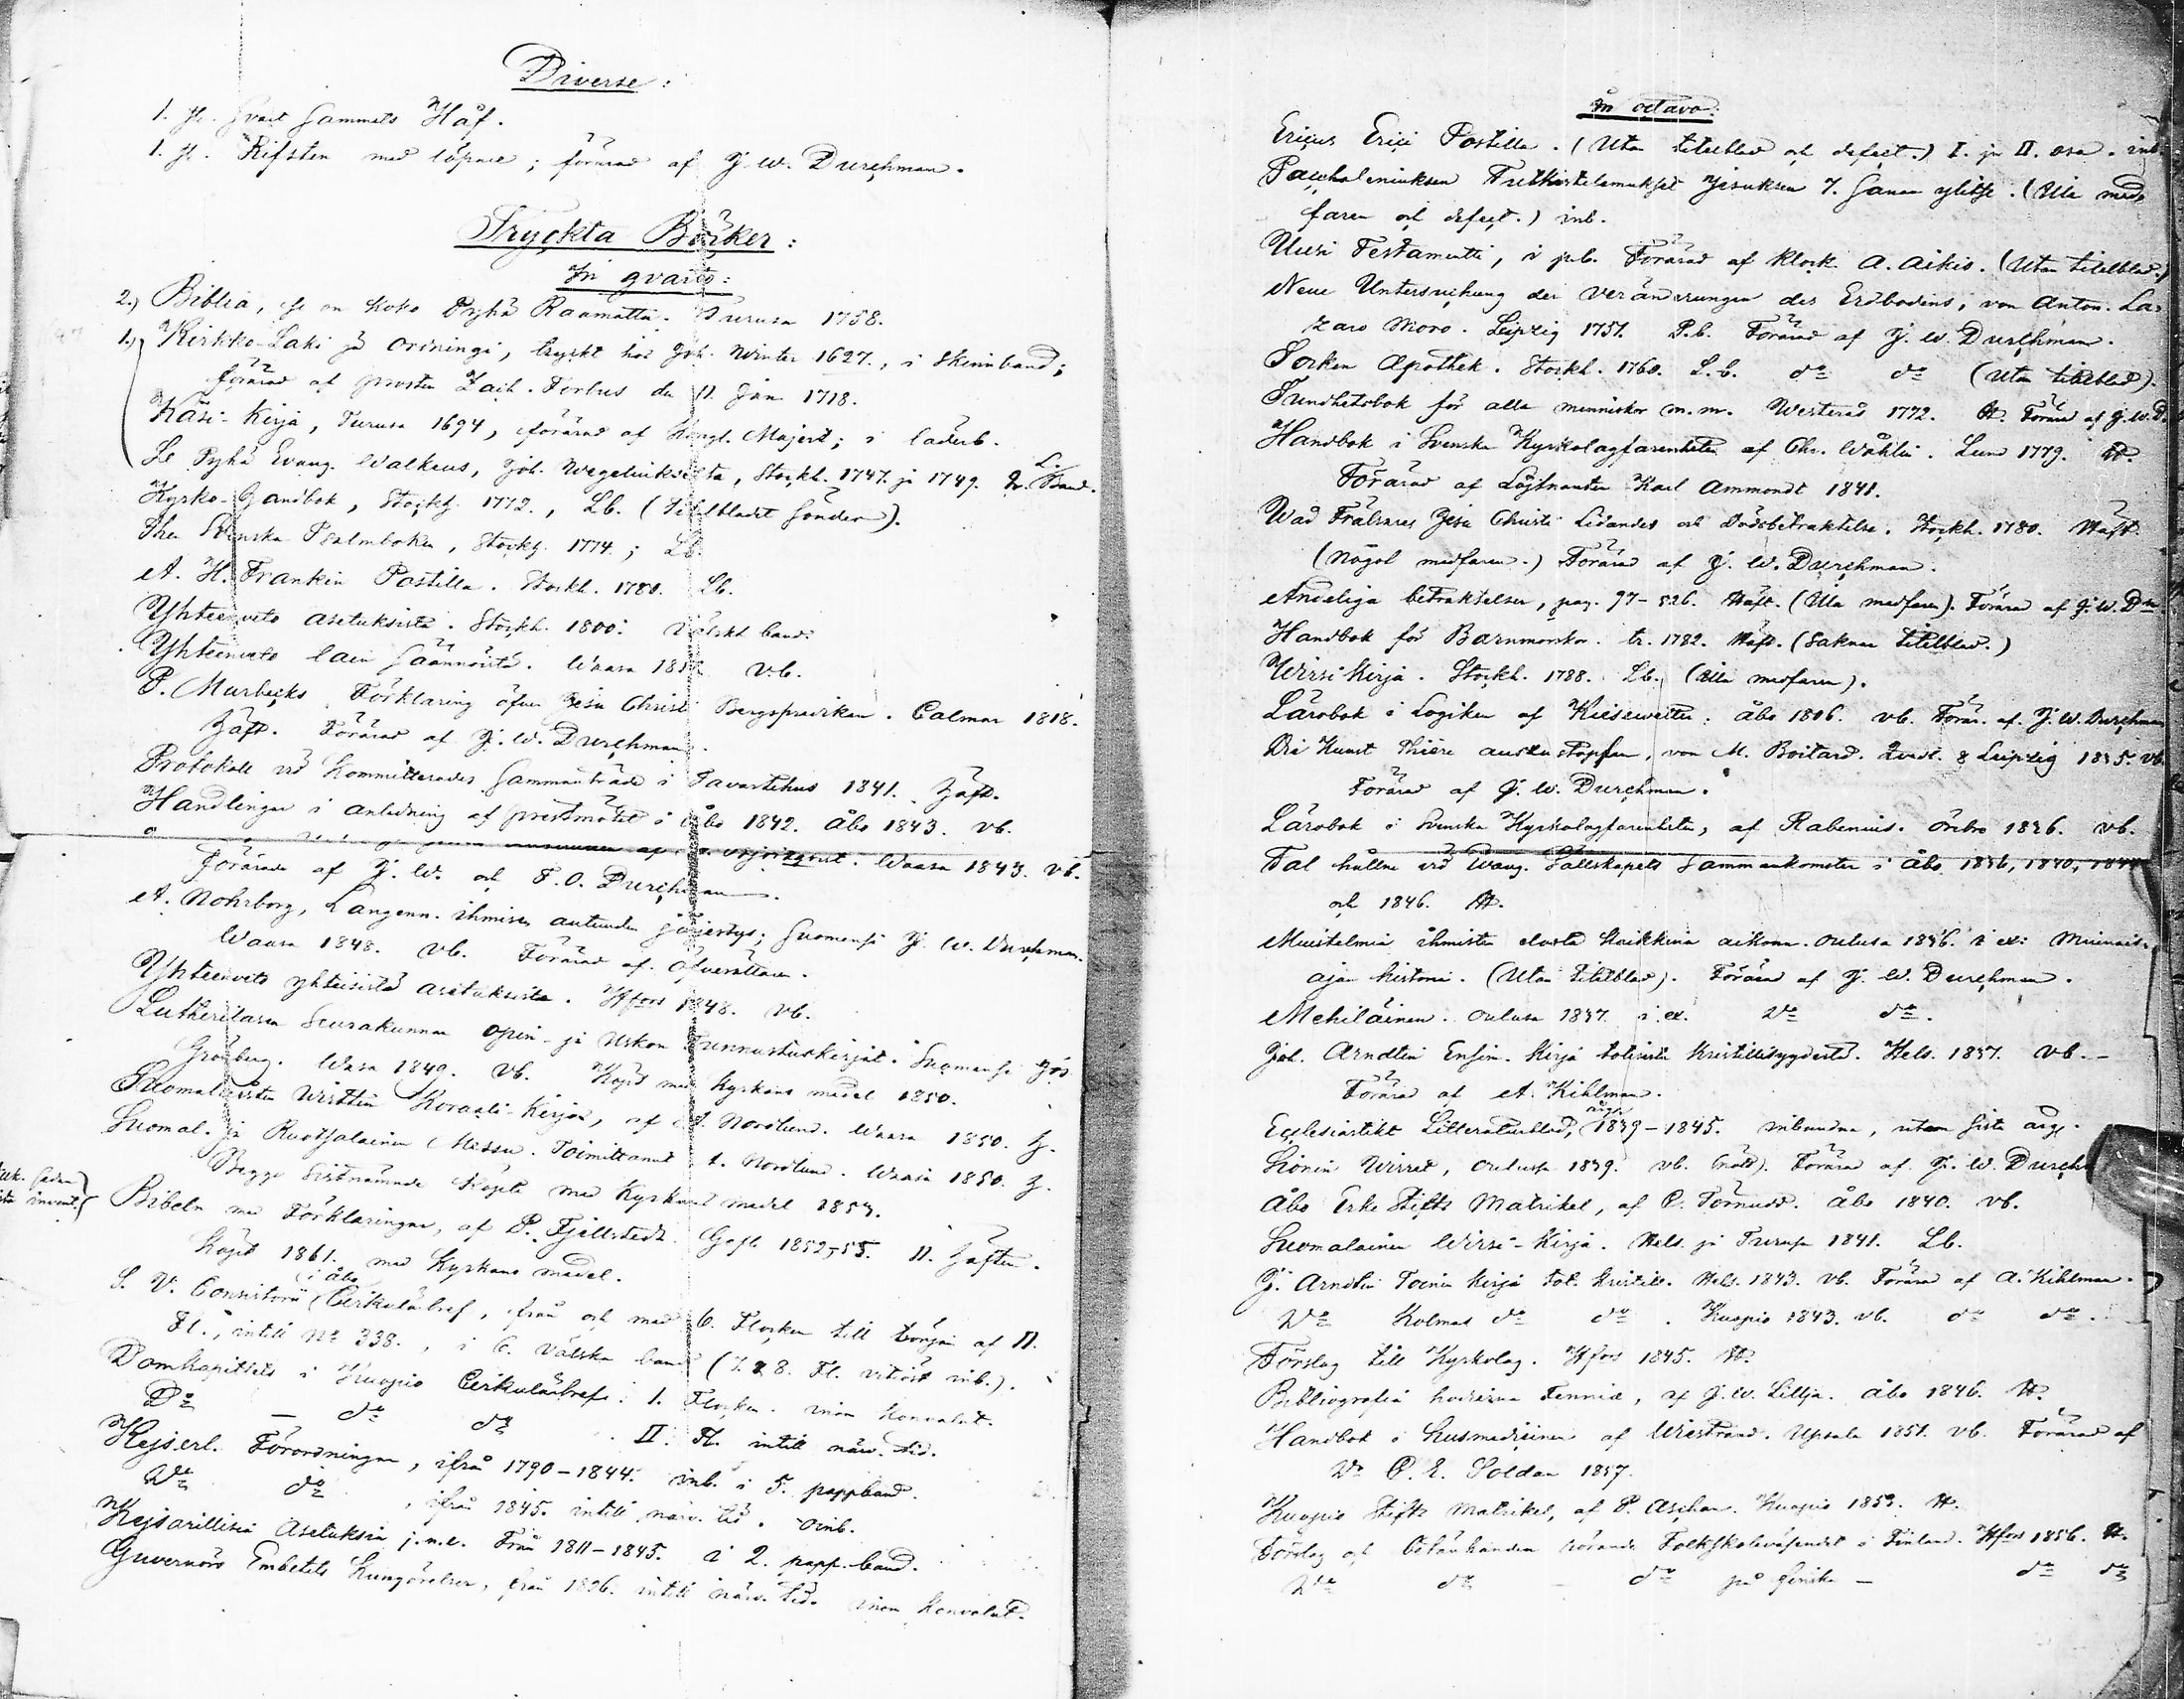 Diverse:
1. st. svart Sammets Håf.
1. st. Rifsten med löpare; förärad af J. W. Durchman.
Tryckta Böcker:
In qvarto:
2.) Biblia, se on Koko Pyhä Raamattu. Turusa 1758.
1.) Kirkko-Laki ja Ordningi, tryckt hos Joh. Winter 1627., i skinnband;
förärad af prosten Zach. Forbus d. 11 Jan 1718.
Käsi-Kirja, Turusa 1694, förärad af Kongl. Majest; i läderb.
Se Pyhä Evang. Walkeus, Joh. Wegeliukselta, Stockh. 1747. ja 1749. 2. L. Band.
Kyrko-Handbok, Stockh. 1772., Lb. (Titelbladet sönder).
Then Svenska Psalmboken, Stockh. 1774.; Lb.
A. H. Franken Postilla. Stockh. 1780. Lb.
Yhteenveto asetuksista. Stockh. 1800: Välskt band.
Yhteenveto lain säännöistä. Waasa vb.
P. Murbecks Förklaring öfver Jesu Christi Bergspredikan. Calmar 1818.
Häft. Förärad af J. W. Durchman.
Protokoll vid Kommitterades Sammanträde i Tavastehus 1841. Häft.
Handlingar i anledning af prestmötet i Åbo 1842. Åbo 1843. vb.
Waasa 1843. vb.
Förärade af J. W. och F. O. Durchman.
A. Nohrborg, Langenn. ihmisen autuuden järjestys; Suomensi J. W. Durchman.
Waasa 1848. vb. Förärad af öfversättaren.
Yhteenveto yhteisistä asetuksista. Hfors 1848. vb.
Lutherilaisen Seurakunnan Opin- ja Uskon Tunnustuskirjat. Suomensi Jos.
Grönberg. Wasa 1849. vb. Köpt med Kyrkans medel 1850.
Suomalaisten Wirtten Koraali-Kirja, af A. Nordlund. Waasa 1850. H.
Suomal. ja Ruotsalainen Messu. Toimittanut A. Nordlund. Waasa 1850. H.
Begge sistnämnde köpta med Kyrkans medel 1853.
Bibeln med Förklaringar, af P. Fjellstedt. Gefle 1852-55. 11. Häften.
Köpt 1861. med Kyrkans medel.
S. V. Consistorii (i Åbo) Cirkulärbref, från och med 6. Flocken till början af 11.
Fl., intill No 338., i 6. Välska band (7. & 8. Fl. vitiöst inb.).
Domkapitlets i Kuopio Cirkulärbref: 1. Flocken. inom Konvolut.
Do — do do II. Fl. intill närv. tid.
Kejserl. Förordningar, ifrån 1790-1844. inb. i 5. pappband.
Do do, ifrån 1845. intill närv. tid. oinb.
Kejsarillisia Asetuksia j.n.e. Från 1811-1845. i 2. papp-band.
Guvernörs Embetets Kungörelser, från 1826. intill närv. tid. inom Konvolut.
In octavo:
Ericus Erici Postilla. (Utan titelblad och defect.) I. ja II. osa. inb.
Jesuksen 7. Sanan ylitse. (Illa med-
faren och defect.) inb.
Uusi Testamentti, i psb. Förärad af Klock. A. Aikio. (Utan titelblad.)
Neue Untersuchung der Veränderungen des Erdbodens, von Anton. La-
zaro Moro. Leipzig 1751. P.b. Förärad af J. W. Durchman.
Socken Apothek. Stockh. 1760. L.b. do do (Utan titelblad).
Sundhetsbok för alla menniskor m.m. Westerås 1772. H. Förärad af J. W. D.
Handbok i Svenska Kyrkolagfarenheten af Chr. Wåhlin. Lund 1779. H.
Förärad af Löjtnanten Karl Ammondt 1841.
Wåd Frälsares Jesu Christi Lidandes och Dödsbetraktelse. Stockh. 1780. Häft.
(Något medfaren.) Förärad af J. W. Durchman.
Andeliga betraktelser, pag. 97-526. Häft. (Illa medfaren). Förärad af J. W. Dn
Handbok för Barnmorskor. tr. 1782. Häft. (Saknar titelblad.)
Wirsi-Kirja. Stockh. 1788. Lb. (Illa medfaren).
Lärobok i Logiken af Kiesewetter. Åbo 1806. vb. Förär. af J. W. Durchman
Die Kunst Thiere auszustopfen, von M. Boitard. Quedl. & Leipzig 1835. vb.
Förärad af J. W. Durchman.
Lärobok i Svenska Kyrkolagfarenheten, af Rabenius. Örebro 1836. vb.
Tal hållne vid Evang. Sällskapets Sammankomster i Åbo 1836, 1840, 1844
och 1846. H.
Muistelmia ihmisten elosta kaikkina aikoina. Oulusa 1836. 1 ex: Muinais-
ajan historia. (Utan titelblad). Förärad af J. W. Durchman.
Mehiläinen. Oulusa 1837. 1 ex. Do do.
Joh. Arndtin Ensim. Kirja totisesta Kristillisyydestä. Hels. 1837. vb.
Förärad af A. Kihlman.
Ecclesiastikt Litteraturblad, årg. 1839-1845. inbundna, utom sista årg.
Sionin Wirret, Oulusa 1839. vb. (nött). Förärad af J. W. Durch
Åbo Erke Stifts Matrikel, af P. Törnudd. Åbo 1840. vb.
Suomalainen Wirsi-Kirja. Hels. ja Turusa 1841. Lb.
J. Arndtin Toinen Kirja tot. Kristill. Hels. 1843. vb. Förärad af A. Kihlman.
Do Kolmas do do. Kuopio 1843. vb. do do.
Förslag till Kyrkolag. Hfors 1845. H.
Bibliografia hodierna Fennia, af J. W. Lillja. Åbo 1846. H.
Handbok i husmedicinen af Wistrand. Upsala 1851. vb. Förärad af
Dr P. E. Soldan 1857.
Kuopio Stifts Matrikel, af P. Aschan. Kuopio 1853. H.
Förslag och Betänkanden rörande Folkskoleväsendet i Finland. Hfors 1856. H.
Do do — do på finska — do do